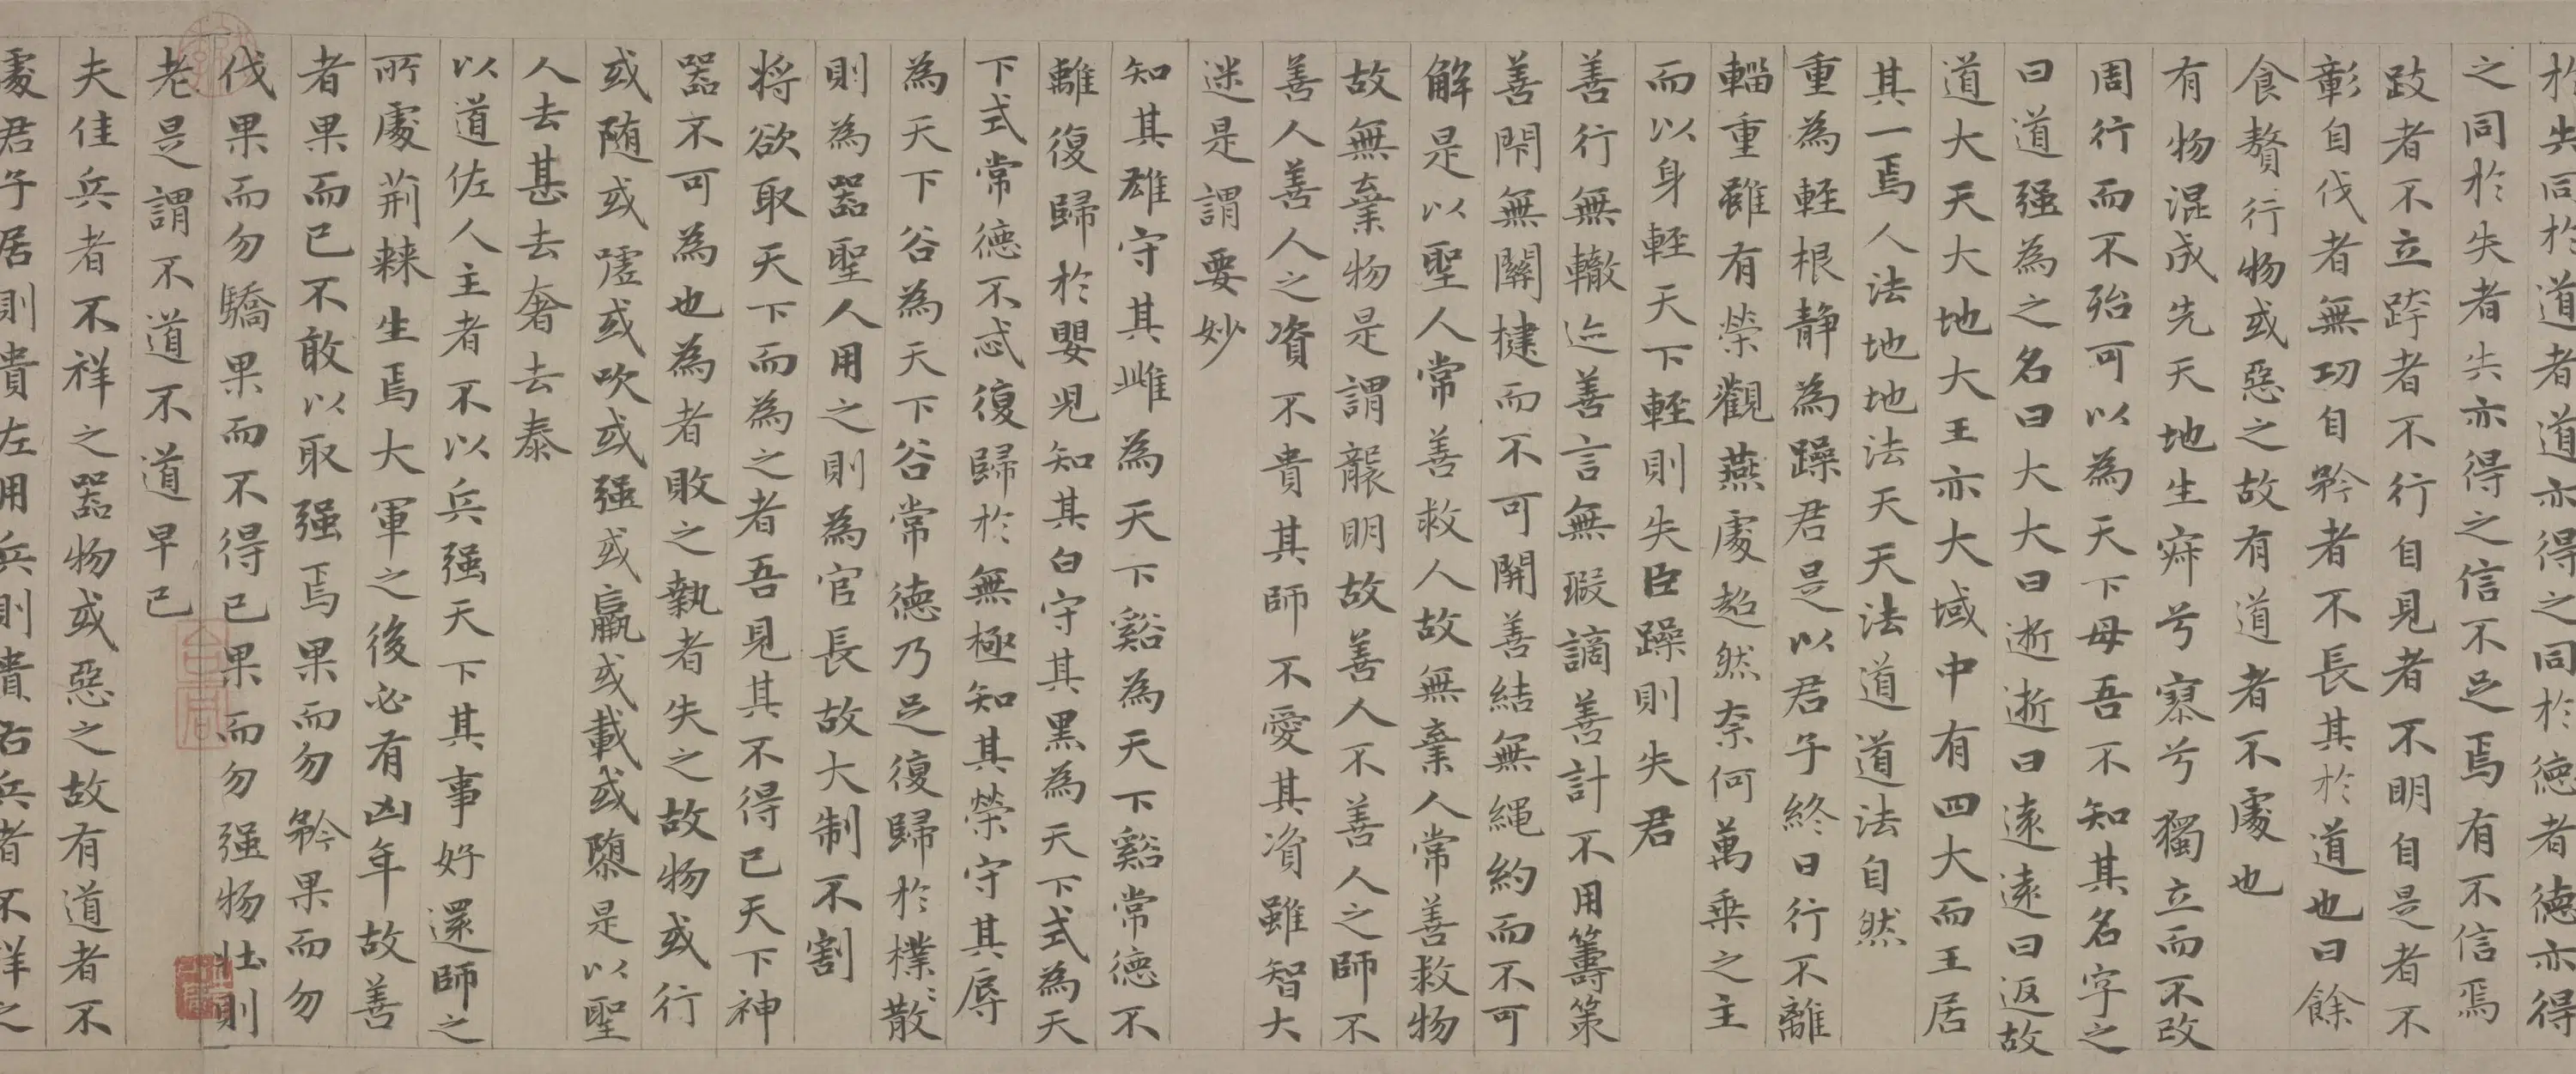 於失同於道者道亦得之同於德者德亦得
之同於失者失亦得之信不足焉有不信焉
跂者不立跨者不行自見者不明自是者不
彰自伐者無功自矜者不長其於道也曰餘
食贅行物或惡之故有道者不處也
有物混成先天地生寂兮寥兮獨立而不改
周行而不殆可以為天下母吾不知其名字之
曰道強為之名曰大大曰逝逝曰遠遠曰返故
道大天大地大王亦大域中有四大而王居
其一焉人法地地法天天法道道法自然
重為輕根静為躁君是以君子終日行不離
輜重雖有榮觀燕處超然柰何萬乗之主
而以身輕天下輕則失臣躁則失君
善行無轍迹善言無瑕謫善計不用籌策
善閇無關楗而不可開善結無繩約而不可
解是以聖人常善救人故無棄人常善救物
故無棄物是謂襲明故善人不善人之師不
善人善人之資不貴其師不愛其資雖智大
迷是謂要妙
知其雄守其雌為天下谿為天下谿常德不
離復歸於嬰児知其白守其黑為天下式為天
下式常德不忒復歸於無極知其榮守其辱
為天下谷為天下谷常德乃足復歸於樸〻散
則為器聖人用之則為官長故大制不割
将欲取天下而為之者吾見其不得已天下神
器不可為也為者敗之執者失之故物或行
或随或嘘或吹或强或羸或載或隳是以聖
人去甚去奢去泰
以道佐人主者不以兵强天下其事好還師之
所處荆棘生焉大軍之後必有凶年故善
者果而已不敢以取强焉果而勿矜果而勿
伐果而勿驕果而不得已果而勿强物壮則
老是謂不道不道早已
夫佳兵者不祥之器物或惡之故有道者不
處君子居則貴左用兵則貴右兵者不祥之